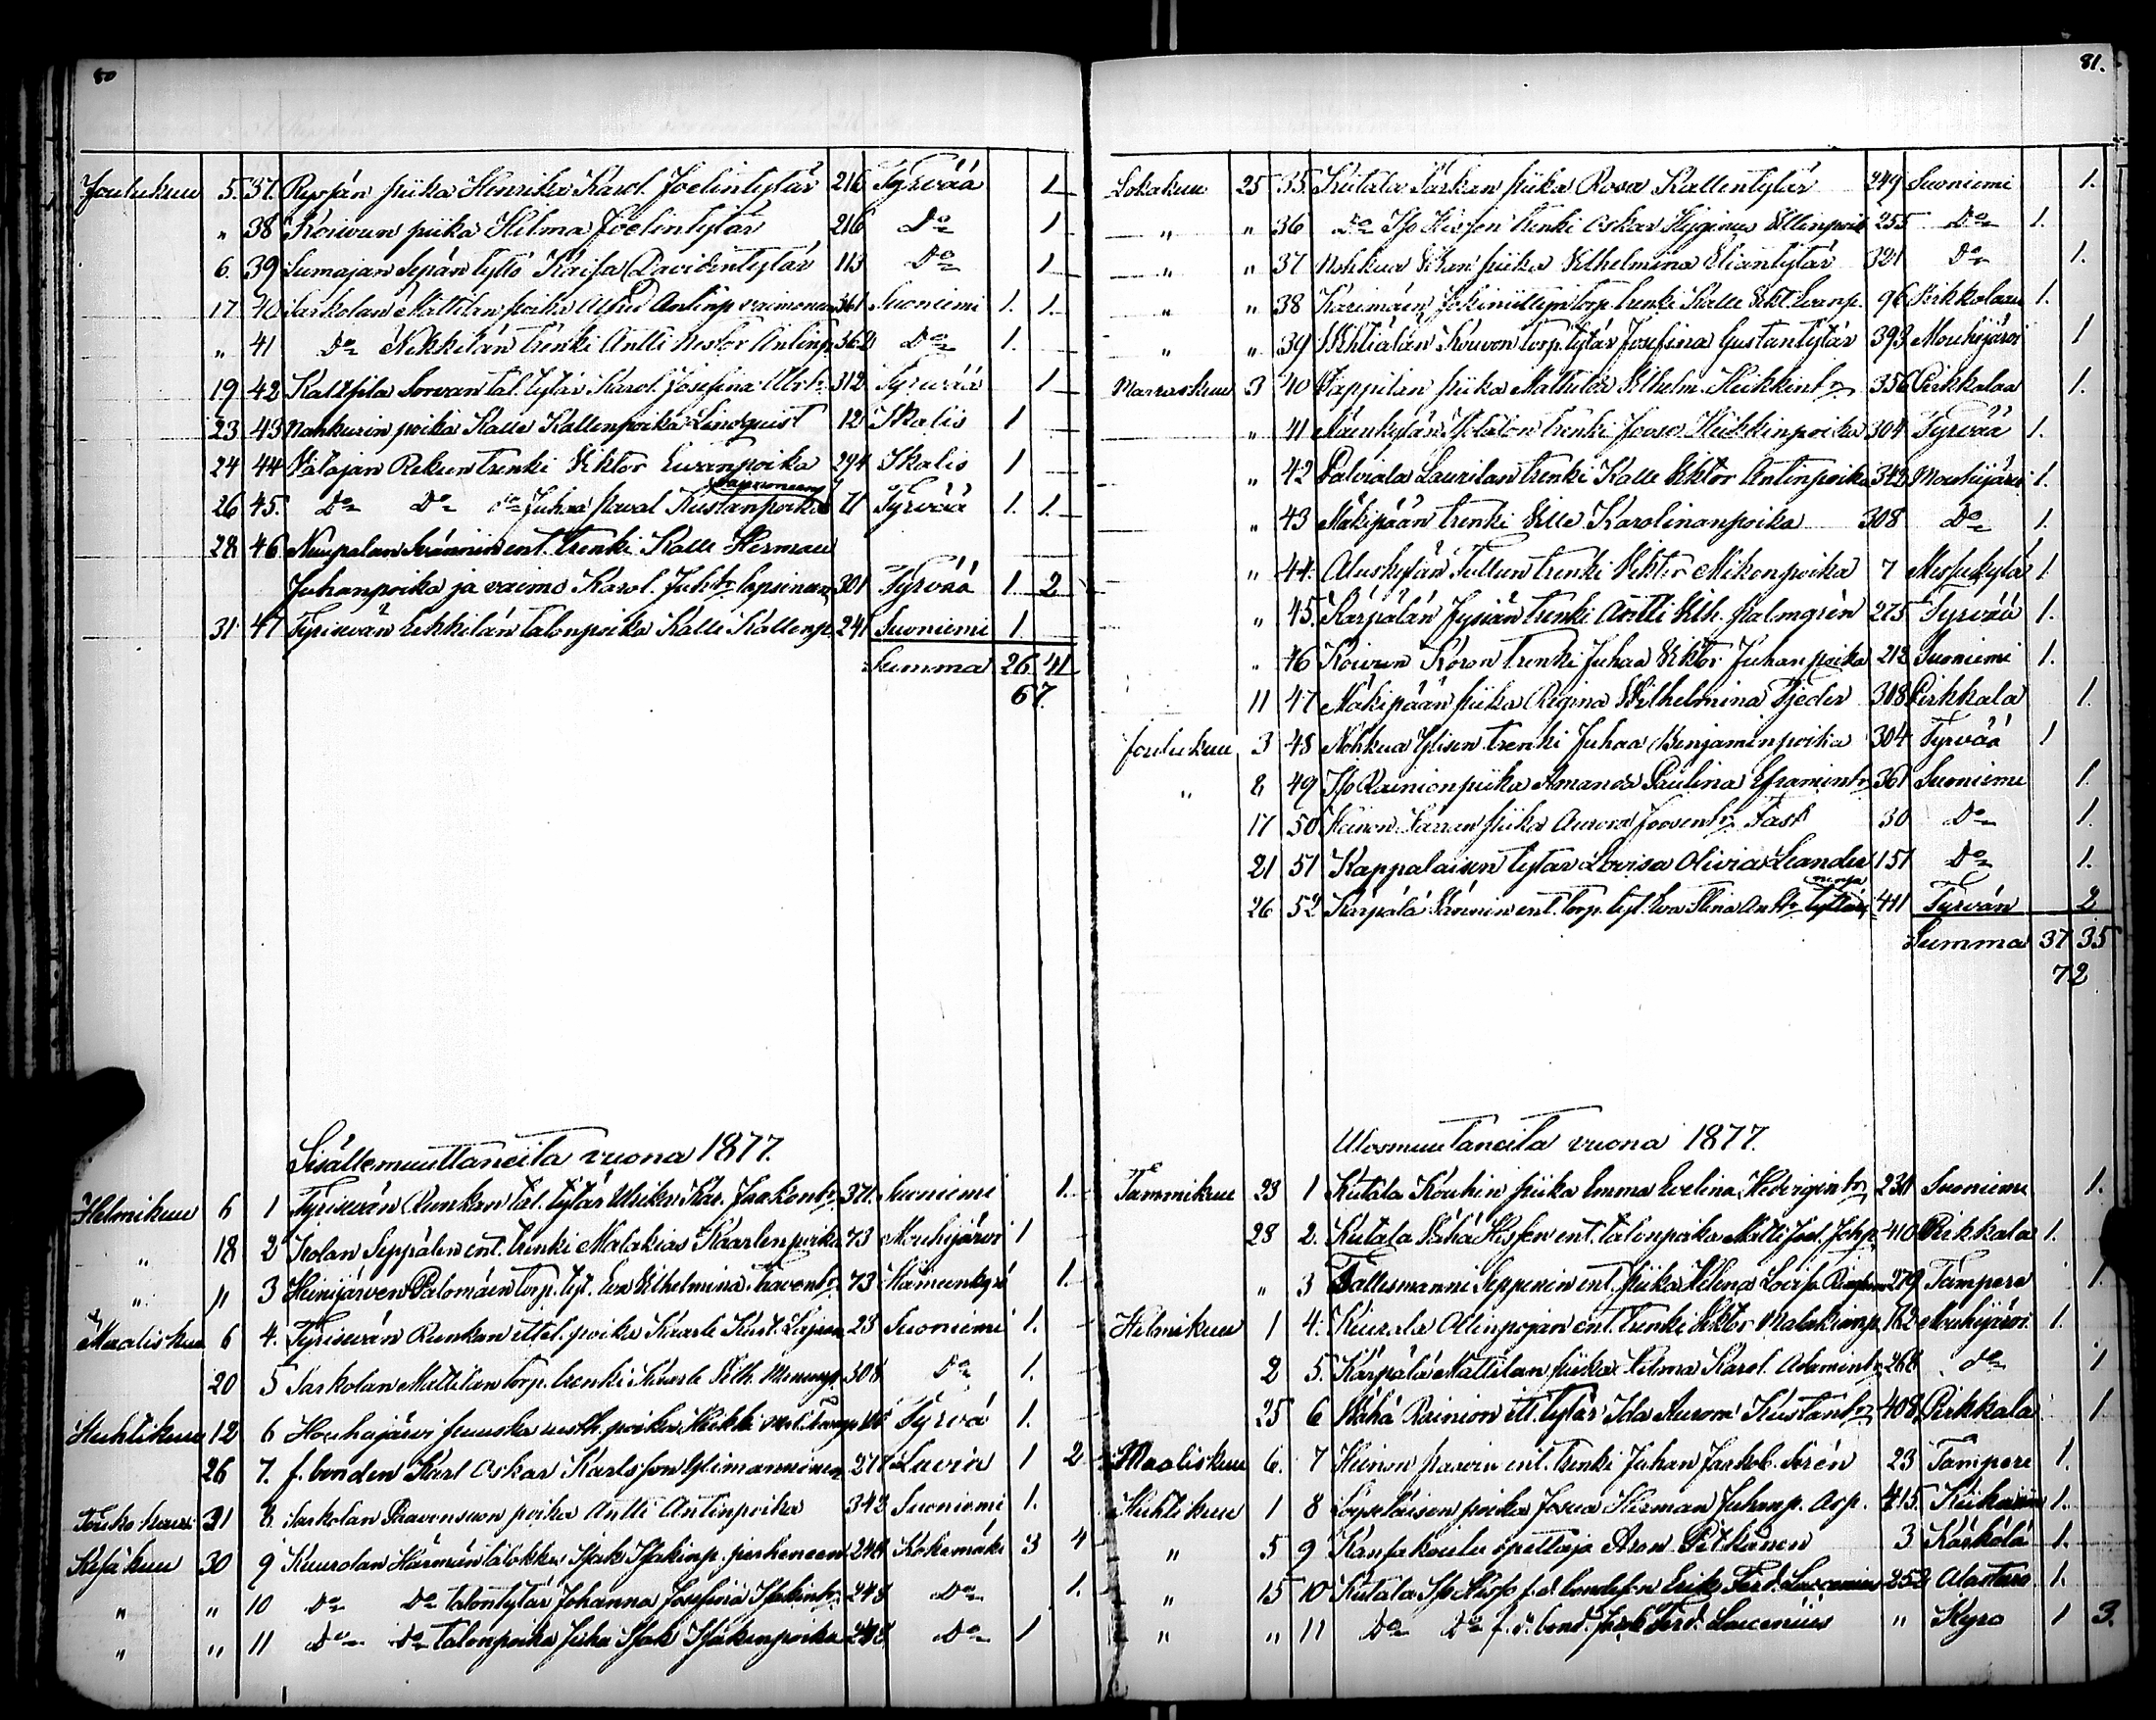 80
Joulukuu 5. 37. Ryöjän piika Henrika Karol. Joelintytär 216 Tyrvää 1
" 38 Koivun piika Hilma Joelintytär 216 Do 1
6. 39 Sumajan Sepän tyttö Kaisa Davidintytär 113 Do 1
17 40 Sarkolan Mattilan poika Alfred Antinp. vaimonen 361 Suoniemi 1. 1.
" 41 Do Nikkilän trenki Antti Nestor Antinp. 362 Do 1.
19 42 Kaltsila Sorvan tal. tytär Karol. Josefina 312 Tyrvää 1
23 43 Nahkurin poika Kalle Kallenpoika Lindquist 12 Ikalis 1
24 44 Vatajan Rekun trenki Viktor Evanpoika 294 Ikalis 1
26 45. Do Do do Juha Paval Kustanpoika 71 Tyrvää 1. 1.
28 46 Nuupalan Svännin ent. trenki Kalle Herman
Juhanpoika ja vaimo Karol. Juhtr lapsinen 301 Tyrvää 1 2
31 47 Tyrisevän Erkkilän talonpoika Kalle Kallenp. 241 Suoniemi 1
Summa 26 41
67.
Sisällemuuttaneita vuona 1877.
Helmikuu 6 1 Tyrisevän Runkun tal. tytär Ulrika Kar. Jaakontr 371. Suoniemi 1.
" 18 2 Isolan Seppälen ent. trenki Malakias Kaarlenpoika 73 Mouhijärvi 1
" " 3 Heinijärven Palomäen torp. tyt. Eva Vilhelmina 73 Hämeenkyrö 1.
Maaliskuu 6 4. Tyrisevän Runkun ittel. poika Kaarle Kust. 23 Suoniemi 1.
20 5 Sarkolan Mattilan torp. trenki Kaarle Vilh. 308 Do 1.
Huhtikuu 12 6 Houhajärvi Junuska usth. poika Heikki Tyrvä 1.
26 7. f. bonden Karl Oskar Karlsson 277 Lavia 1 2
Toukokuu 31 8. Sarkolan poika Antti Antinpoika 342 Suoniemi 1.
Kesäkuu 30 9 Kuurolan Härmän talokkas Isak Isakinp. perheneen 244 Kokemäki 3 4
" " 10 Do Do talontytär Johanna Josefina Isakintr. 243 Do 1.
" " 11 Do Do talonpoika Juha Isak Isakinpoika 243 Do 1
81.
Lokakuu 25 35. Kutala Sarkan piika Rosa Kallentytär 249 Suoniemi 1.
" " 36 Do Iso Hissen trenki Oskar Hyginus Ellinpoik 255 Do 1.
" " 37 Nohkua piika Vilhelmina Eliantytär 321 Do 1.
" " 38 Karimäen torp. trenki Kalle Vikt. Evanp. 96 Pirkkalaan 1.
" " 39 Vihtiälän Rouvon torp. tytär Josefina Gustantytär 393 Mouhijärvi 1
Marraskuu 3 40 Pappilan piika Mathilda Vilhelm. Heikkintr 356 Pirkkalaa 1.
" 41 Mäenkylän Isotalon trenki Joose Heikkinpoika 304 Tyrvää 1.
" 42 Palviala Laurilan trenki Kalle Viktor Antinpoika 342 Mouhijärvi 1.
" 43 Mäkipään trenki Ville Karolinanpoika 308 Do 1.
" 44. Aluskylän Tullun trenki Viktor Mikonpoika 7 Messukylä 1.
" 45. Kärpälän Jysiän trenki Antti Vilh. Palmgrén 275 Tyrvää 1.
" 46 Koivun Koron trenki Juhaa Viktor Juhanpoika 212 Suoniemi 1.
11 47 Mäkipään piika Regina Wilhelmina Tjeder 308 Pirkkala 1.
Joulukuu 3 48 Nohkua Ylisen trenki Juhaa Benjaminpoika 304 Tyrvää 1
" 8 49 Iso Rainion piika Amanda Paulina Eframintr 361 Suoniemi 1.
17 50 Heinon piika Aurora Joosentr. Fast 30 Do 1.
21 51 Kappalaisen tytär Lovisa Olivia Leander 151 Do 1.
26 52 Kärpälä Svännin ent. torp. tyt. Eva Stina Antr. tyttärinensa 411 Tyrvän 2
Summa 37 35
72
Ulosmuuttaneita vuona 1877.
Tammikuu 23 1 Kutala Kouhin piika Emma Evelina Hedvigintr 230 Suoniemi 1.
28 2. Kutala Vähä Hissen ent. talonpoika Matti Joel. Johp. 410 Pirkkala 1.
" 3 Vallesmanni Seppenin ent. piika Helena Lovisa 279 Tampere 1.
Helmikuu 1 4. Kiurala Ollinpojan ent. trenki Viktor Malakianp. 162 Mouhijärvi 1.
2 5. Kärpälä Mattilan piika Vilma Karol. Adamintr 268 do 1
25 6 Vähä Rainion itt. tytär Ida Aurora Kustantr. 408 Pirkkala 1
Maaliskuu 6. 7 Heinon Paavin ent. trenki Juhan Jaakob Sirén 23 Tampere 1.
Huhtikuu 1 8 poika Josua Herman Juhanp. Asp. 415. Kiikoisiin 1.
" 5 9 Kansakoulu opettaja Aron Pitkänen 3 Kärkölä 1.
" 15 10 Kutala Iso Hiss f.d. bondeson Erik Ferd. 252 Alastaro 1.
" " 11 Do Do f.d. bond. Ferd. " Kyro 1 3.